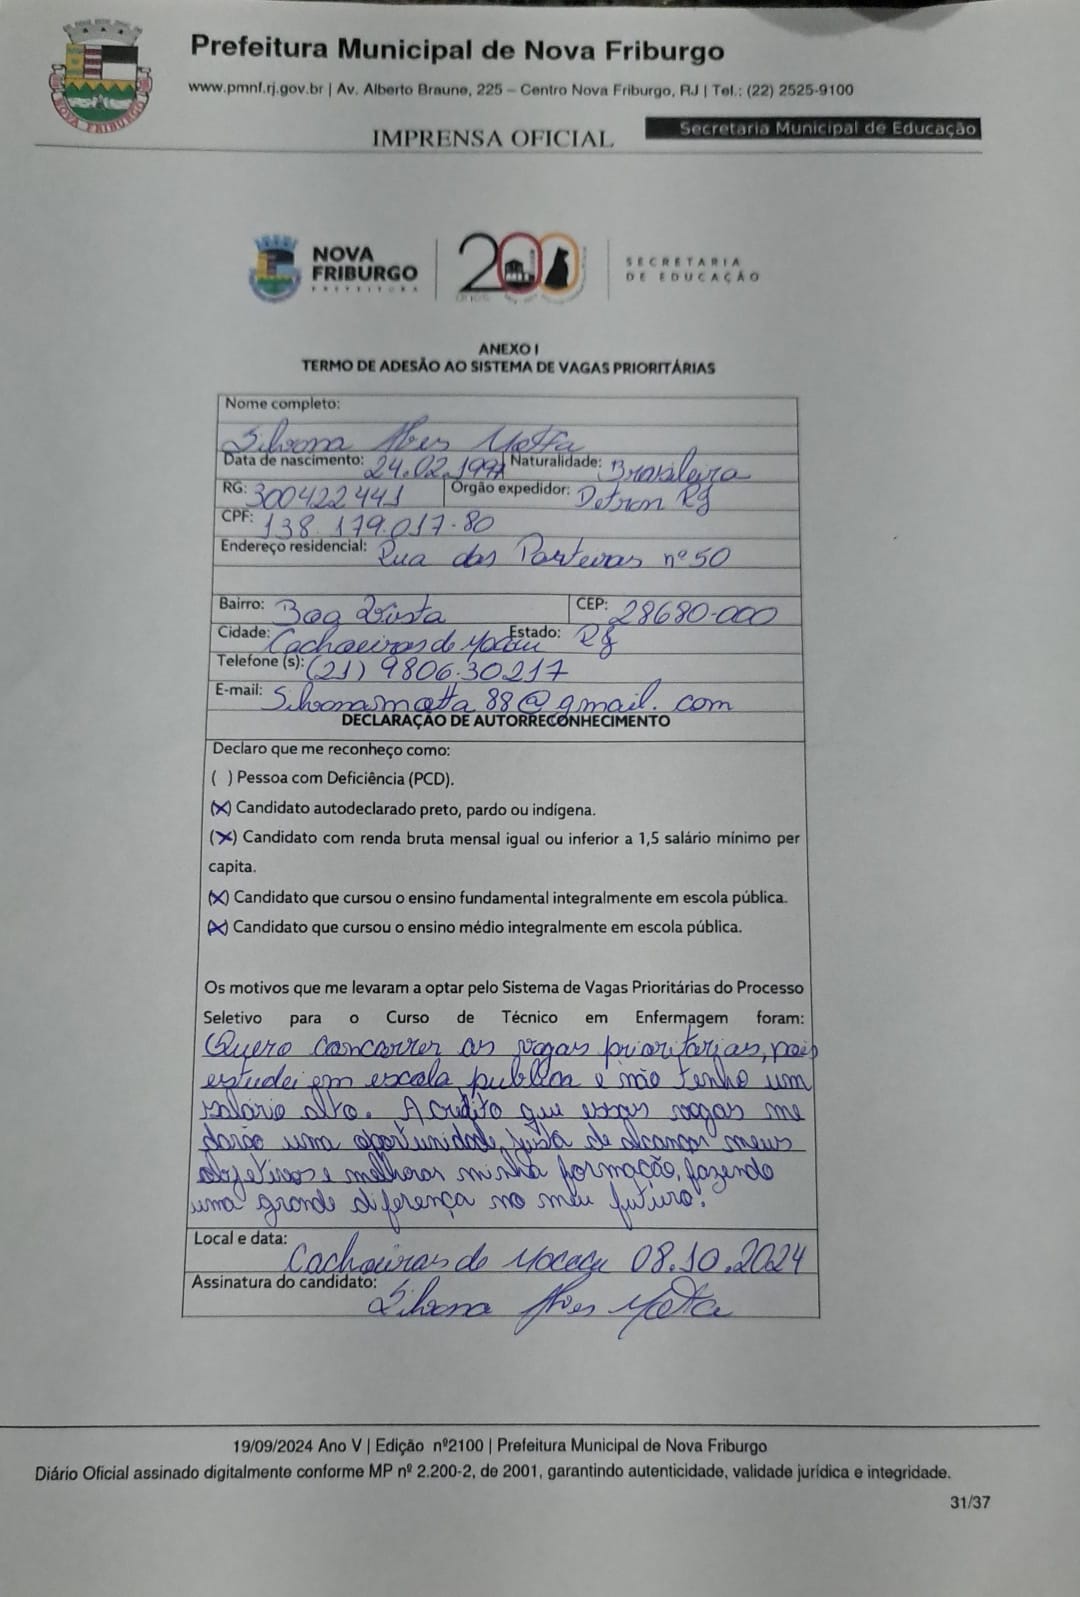 Prefeitura Municipal de Nova Friburgo
www.pmnf.rj.gov.br | Av. Alberto Braune, 225 – Centro Nova Friburgo, RJ | Tel.: (22) 2525-9100
IMPRENSA OFICIAL
Secretaria Municipal de Educação
NOVA FRIBURGO
NOVA
FRIBURGO
PREFEITURA
200
SECRETARIA
DE EDUCAÇÃO
ANEXO I
TERMO DE ADESÃO AO SISTEMA DE VAGAS PRIORITÁRIAS
Nome completo:
Silvana Alves Motta
Data de nascimento: 24.02.1997 Naturalidade: Brasileira
RG: 300422441 Órgão expedidor: Detran RJ
CPF: 138.179.017-80
Endereço residencial: Rua das Parteiras nº 50
Bairro: Boa Vista CEP: 28680-000
Cidade: Cachoeiras de Macacu Estado: RJ
Telefone (s): (21) 9806.30217
E-mail: Silvanamotta88@gmail.com
DECLARAÇÃO DE AUTORRECONHECIMENTO
Declaro que me reconheço como:
( ) Pessoa com Deficiência (PCD).
(X) Candidato autodeclarado preto, pardo ou indígena.
(X) Candidato com renda bruta mensal igual ou inferior a 1,5 salário mínimo per
capita.
(X) Candidato que cursou o ensino fundamental integralmente em escola pública.
(X) Candidato que cursou o ensino médio integralmente em escola pública.
Os motivos que me levaram a optar pelo Sistema de Vagas Prioritárias do Processo
Seletivo para o Curso de Técnico em Enfermagem foram:
Quero concorrer as vagas prioritarias, pois
estudei em escola publica e não tenho um
salário alto. Acredito que essas vagas me
darão uma oportunidade justa de alcançar meus
objetivos e melhorar minha formação, fazendo
uma grande diferença no meu futuro.
Local e data: Cachoeiras de Macacu 08.10.2024
Assinatura do candidato: Silvana Alves Motta
19/09/2024 Ano V | Edição nº2100 | Prefeitura Municipal de Nova Friburgo
Diário Oficial assinado digitalmente conforme MP nº 2.200-2, de 2001, garantindo autenticidade, validade jurídica e integridade.
31/37